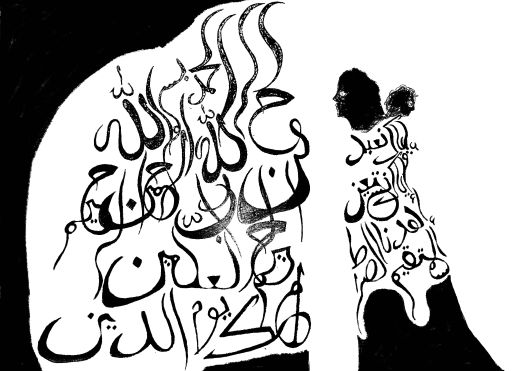 بسم الله الرحمن الرحيم
الحمد لله رب العلمين
الرحمن الرحيم
ملك يوم الدين
إياك نعبد
وإياك نستعين
اهدنا الصراط
المستقيم